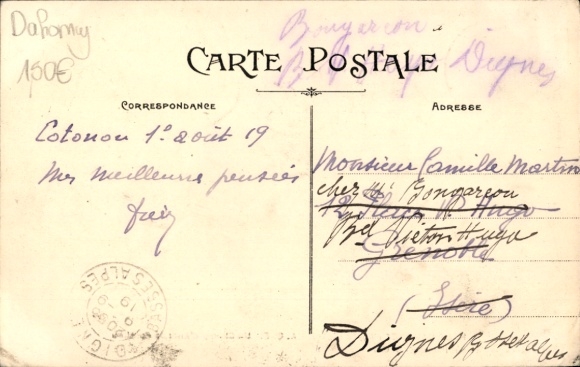 Dahomey
150€
Bongarcon
Bd Hugo Dignes
CARTE POSTALE
CORRESPONDANCE
ADRESSE
Cotonou 1º août 19
Mes meilleures pensées
Monsieur Camille Martin
chez Mr Bongarcon
12 Place V. Hugo
Bd Victor Hugo
Grenoble
(Isère)
Dignes Bsses alpes
DIGNE
BASSES ALPES
19